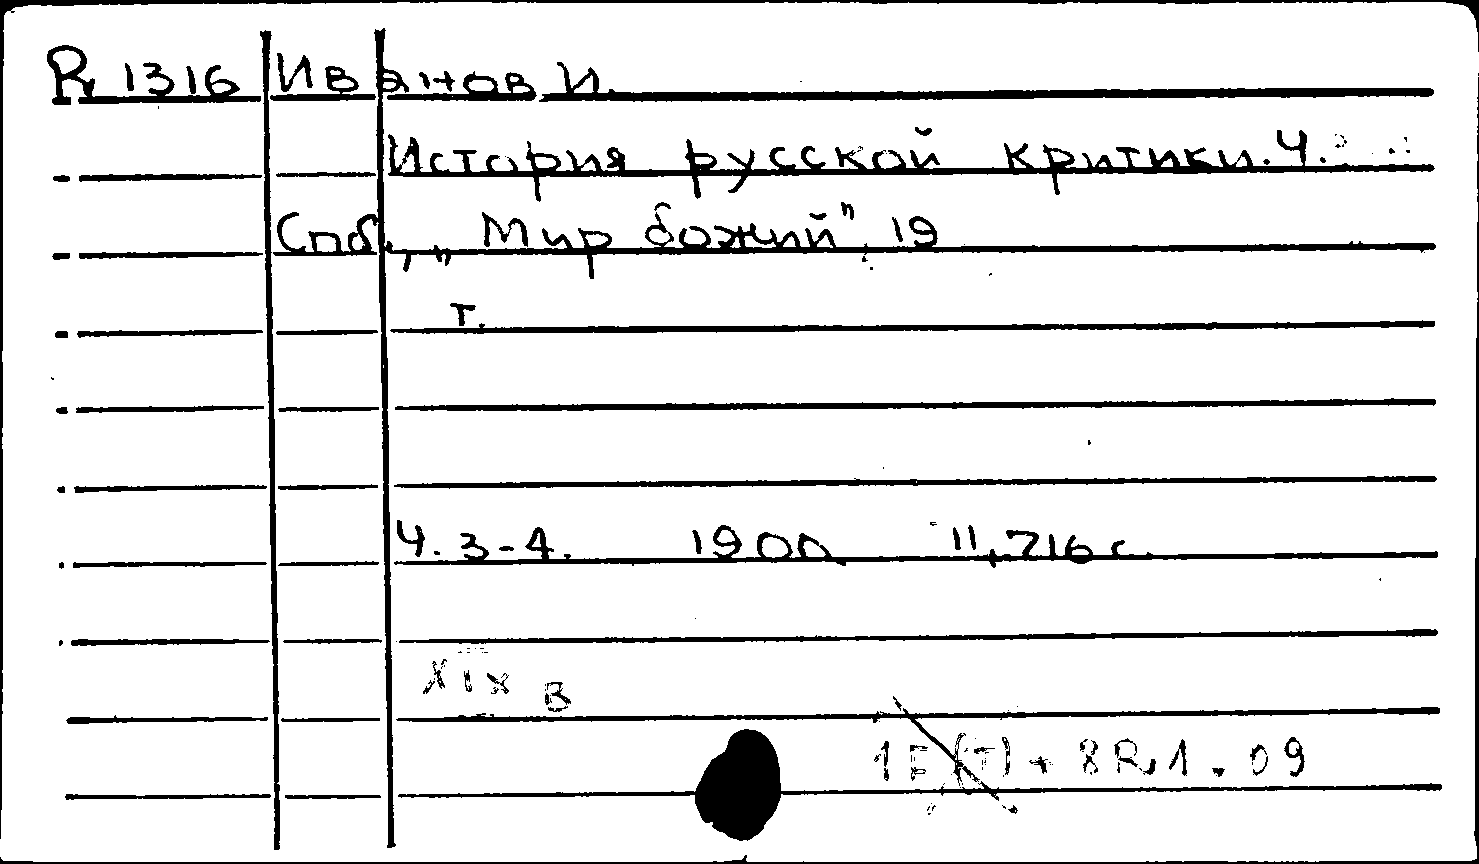 R 1316 Иванов И.
История русской критики. Ч.
Спб., „Мир божий", 19
т.
Ч. 3-4. 1900 II, 716 с.
XIX в
+ 8R1.09